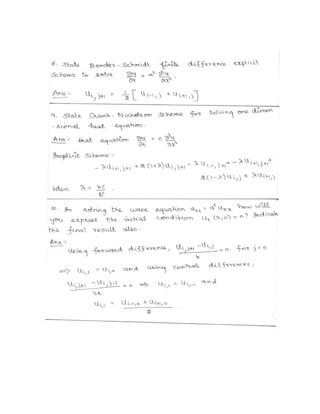 8. State Bender-Schmidt finite difference explicit
Scheme to solve ∂u/∂t = α² ∂²u/∂x².
Ans:- Ui,j+1 = 1/2 [Ui-1,j + Ui+1,j]
9. State Crank-Nicholson Scheme for Solving one dimen
-sional heat equation.
Ans:- heat equation ∂u/∂t = c ∂²u/∂x²
Implicit Scheme:-
-λUi+1,j+1 + 2(1+λ)Ui,j+1 - λUi-1,j+1 = λUi+1,j +
2(1-λ)Ui,j + λUi-1,j
When λ = kc/h².
10. In solving the wave equation utt = a² uxx how will
you express the initial condition Ut (x,0) = 0? Indicate
the final result also.
Ans:-
Using forward difference, Ui,j+1 - Ui,j / k = 0 for j=0
⇒ Ui,1 = Ui,0 and using central differences.
Ui,j+1 - Ui,j-1 / 2k = 0 ⇒ Ui,1 = Ui,-1 and
Ui,1 = Ui-1,0 + Ui+1,0 / 2